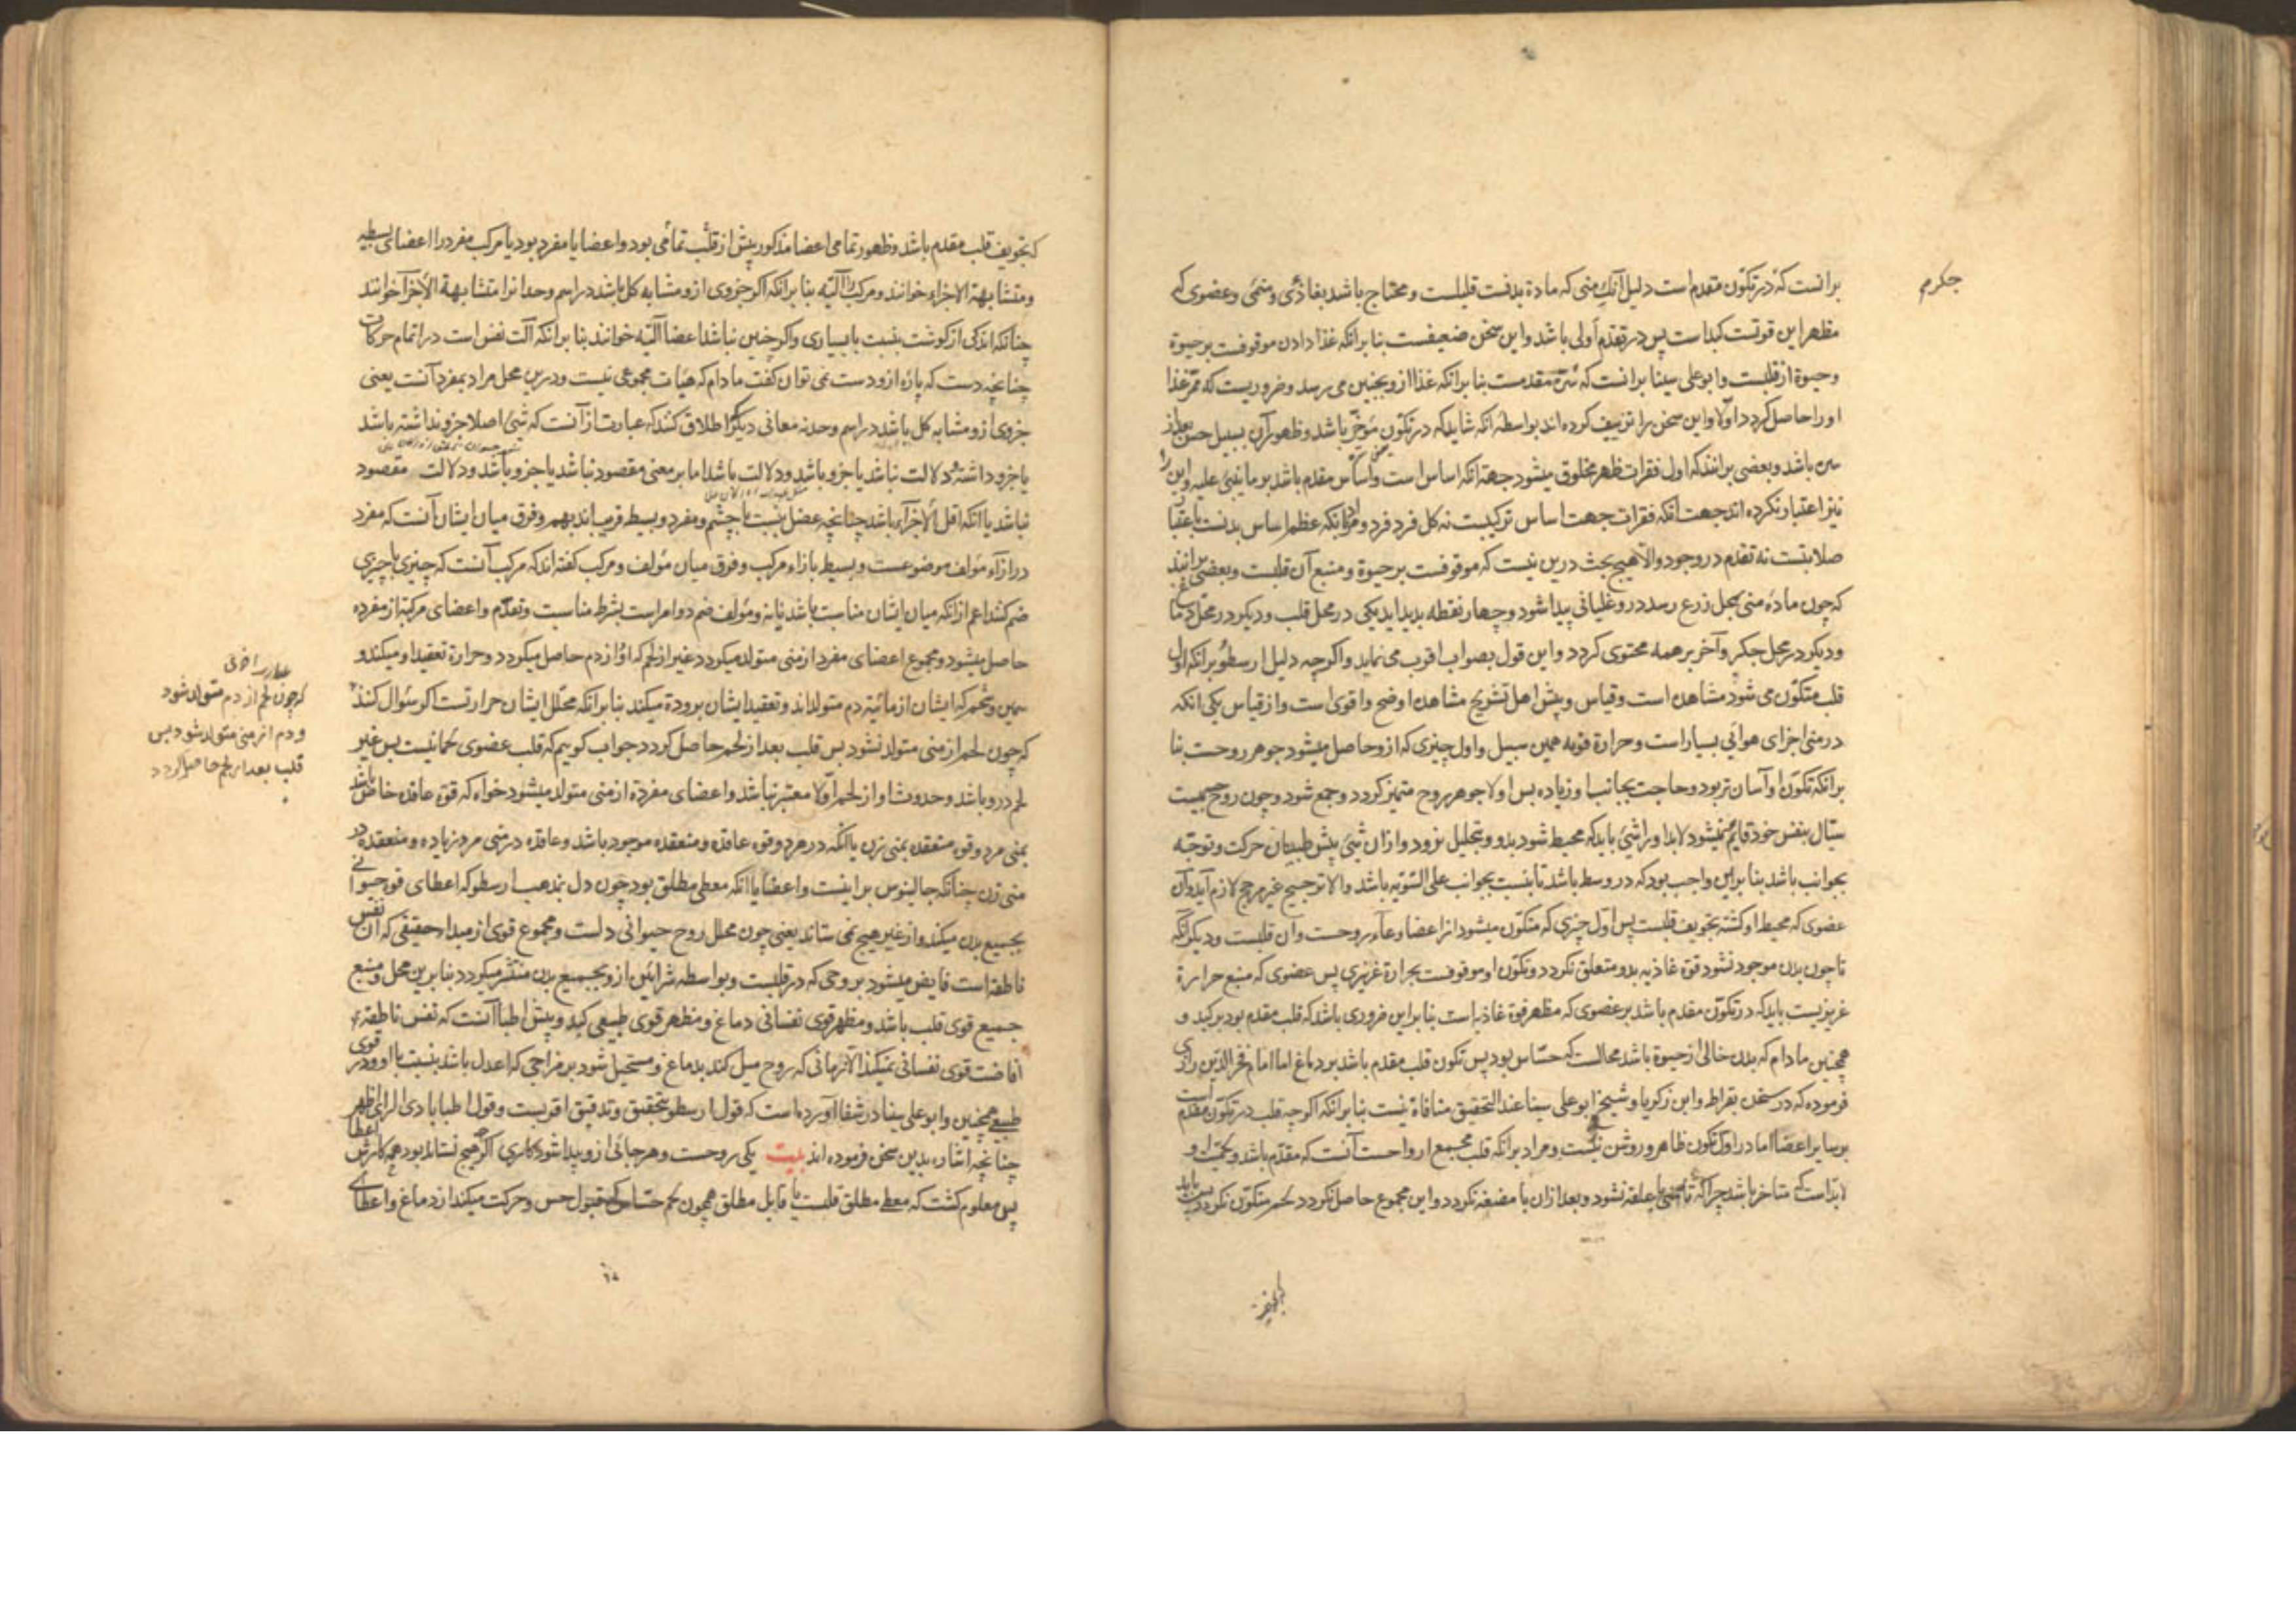 جکرم
برانست که در تکون متقدم است دلیل آنکه منی که مادۀ بدنست قلیلست و محتاج باشد بغاذی و منمی و عضوی که
مظهر این قوتست کبد است پس در تقدم اولی باشد و این سخن ضعیفست بنا برانکه غذا دادن موقوفست بر حیوة
و حیوة از قلبست و ابو علی سینا برانست که سره مقدمست بنا برانکه غذا ازو بجنین می رسد و ضروریست که ممر غذا
او را حاصل گردد اولا و این سخن را تزییف کرده اند بواسطه انکه شاید که در تکون مؤخر باشد و ظهور آن بسبیل حس بعد از
سن باشد و بعضی برانند که اول فقرات ظهر مخلوق میشود جهة انکه اساس است و اساس مقدم باشد بر ما یبنی علیه و این را
نیز اعتبار نکرده اند جهت انکه فقرات جهت اساس ترکیبست نه کل فرد فرد و مراد انکه عظم اساس بدنست باعتبار
صلابتست نه تقدم در وجود والا هیچ بحث درین نیست که موقوفست بر حیوة و منبع آن قلبست و بعضی برانند
که چون مادۀ منی بمحل زرع رسد درو غلیانی پیدا شود و چهار نقطه بدید اید یکی در محل قلب و دیکر در محل دماغ
و دیکر در محل جکر و آخر بر همه محتوی کردد و این قول بصواب اقرب می نماید و اکرچه دلیل ارسطو برانکه اول
قلب متکون می شود مشاهده است و قیاس و پیش اهل تشریح مشاهده اوضح و اقوی است و از قیاس یکی انکه
در منی اجزای هوائی بسیار است و حرارة قویه همین سبیل و اول چیزی که ازو حاصل میشود جوهر روحست بنا
برانکه تکون او آسان تر بود و حاجت بجانب او زیاده پس اولا جوهر روح متمیز کردد و جمع شود و چون روح جسمیست
سیال بنفس خود قایم نمیشود لابد او را شیئ باید که محیط شود بدو و بتحلیل نرود و ازان شیئ پیش طبیبان حرکت و توجه
بجوانب باشد بنا براین واجب بود که در وسط باشد تا نسبت بجوانب علی السویه باشد والا ترجیح غیر مرجح لازم آید و آن
عضوی که محیط او کشته تجویف قلبست پس اول چیزی که متکون میشود از اعضا وعاء روحست و آن قلبست و دیکر انکه
تا چون بدن موجود نشود قوة غاذیه بدو متعلق نکردد و تکون او موقوفست بحرارة غریزی پس عضوی که منبع حرارة
غریزیست باید که در تکون مقدم باشد بر عضوی که مظهر قوة غاذیه است بنا براین ضروری باشد که قلب مقدم بود بر کبد و
همچنین مادام که بدن خالی از حیوة باشد محالست که حساس بود پس تکون قلب مقدم باشد بر دماغ اما امام فخر الدین رازی
فرموده که در سخن بقراط و ابن زکریا و شیخ ابو علی سینا عند التحقیق منافاة نیست بنا برانکه اکرچه قلب در تکون مقدم است
بر سایر اعضا اما در اول تکون ظاهر و روشن نیست و مراد برانکه قلب مجمع ارواحست آنست که مقدم باشد و لحمیت او
لابد است که متاخر باشد چرا که تا منی با علقه نشود و بعد ازان با مضغه نکردد و این مجموع حاصل نکردد لحم متکون نکردد پس باید
که تجویف قلب مقدم باشد و ظهور تمامی اعضا مذکور پیش از قلب تمامی بود و اعضا یا مفرد بود یا مرکب مفرد را اعضای بسطیه
و متشابهة الاجزاء خوانند و مرکب را آلیه بنا برانکه اکر جزوی ازو مشابه کل باشد در اسم و حد انرا متشابهة الاجزا خوانند
چنانکه اندکی از کوشت بنسبت با بسیاری و اکر چنین نباشد اعضا آلیه خوانند بنا برانکه آلت نفس است در اتمام حرکات
چنانچه دست که پارۀ ازو دست نمی توان کفت مادام که هیات مجموعی نیست و درین محل مراد بمفرد آنست یعنی
جزوی ازو مشابه کل باشد در اسم و حد نه معانی دیکر که اطلاق کنند که عبارت از آنست که شیئ اصلا جزو نداشته باشد
یا جزو داشته و دلالت نباشد یا جزو باشد و دلالت باشد اما بر معنی مقصود نباشد یا جزو باشد و دلالت مقصود
نباشد یا انکه اقل الاجزاء باشد چنانچه عضل بنسبت با چشم و مفرد و بسیط قریب اند بهم و فرق میان ایشان آنست که مفرد
در ازاء مؤلف موضوعست و بسیط بازاء مرکب و فرق میان مؤلف و مرکب کفته اند که مرکب آنست که چیزی با چیزی
ضم کنند اعم از انکه میان ایشان مناسبت باشد یا نه و مؤلف ضم دو امر است بشرط مناسبت و تقدم و اعضای مرکبه از مفرده
حاصل میشود و مجموع اعضای مفرد از منی متولد میکردد غیر از لحم که او از دم حاصل میکردد و حرارة تعقید او میکند و
سمین و شحم که ایشان از مائیة دم متولد اند و تعقید ایشان برودة میکند بنا برانکه محلل ایشان حرارتست اکر سؤال کنند
که چون لحم از منی متولد نشود پس قلب بعد از لحم حاصل کردد جواب کوییم که قلب عضوی لحمانیست پس غیر
لحم درو باشد و حدوث او از لحم اولا معتبر نباشد و اعضای مفردة از منی متولد میشود خواه که قوة عاقده خاص باشد
بمنی مرد و قوة منعقده بمنی زن یا انکه در هردو قوة عاقده و منعقده موجود باشد و عاقده در منی مرد زیاده و منعقده در
منی زن چنانکه جالینوس بر اینست و اعضا یا انکه معطی مطلق بود چون دل بمذهب ارسطو که اعطای قوة حیوانی
بجمیع بدن میکند و از غیر هیچ نمی ستاند یعنی چون محلل روح حیوانی دلست و مجموع قوی از مبدا حقیقی که آن نفس
ناطقه است فایض میشود بروحی که در قلبست و بواسطه شرائین ازو بجمیع بدن منتشر میکردد بنا برین محل و منبع
جمیع قوی قلب باشد و مظهر قوی نفسانی دماغ و مظهر قوی طبیعی کبد و پیش اطبا آنست که نفس ناطقه
افاضت قوی نفسانی نمیکند الا زمانی که روح میل کند بدماغ و مستحیل شود بر مزاجی که اعدل باشد بنسبت با او و در قوی
طبیعی همچنین و ابو علی سینا در شفا آورده است که قول ارسطو بتحقیق و تدقیق اقربست و قول اطبا بادی الرای اظهر
چنانچه اشاره بدین سخن فرموده اند بیت یکی روحست و هر جائی ازو پیدا شود کاری اکر هیچ نستاند بود همه کارش اعطا
پس معلوم کشت که معطی مطلق قلبست یا قابل مطلق همچون لحم حساس که قبول حس و حرکت میکند از دماغ و اعطای
که چون لحم از دم متولد شود
و دم از منی متولد شود پس
قلب بعد از لحم حاصل کردد